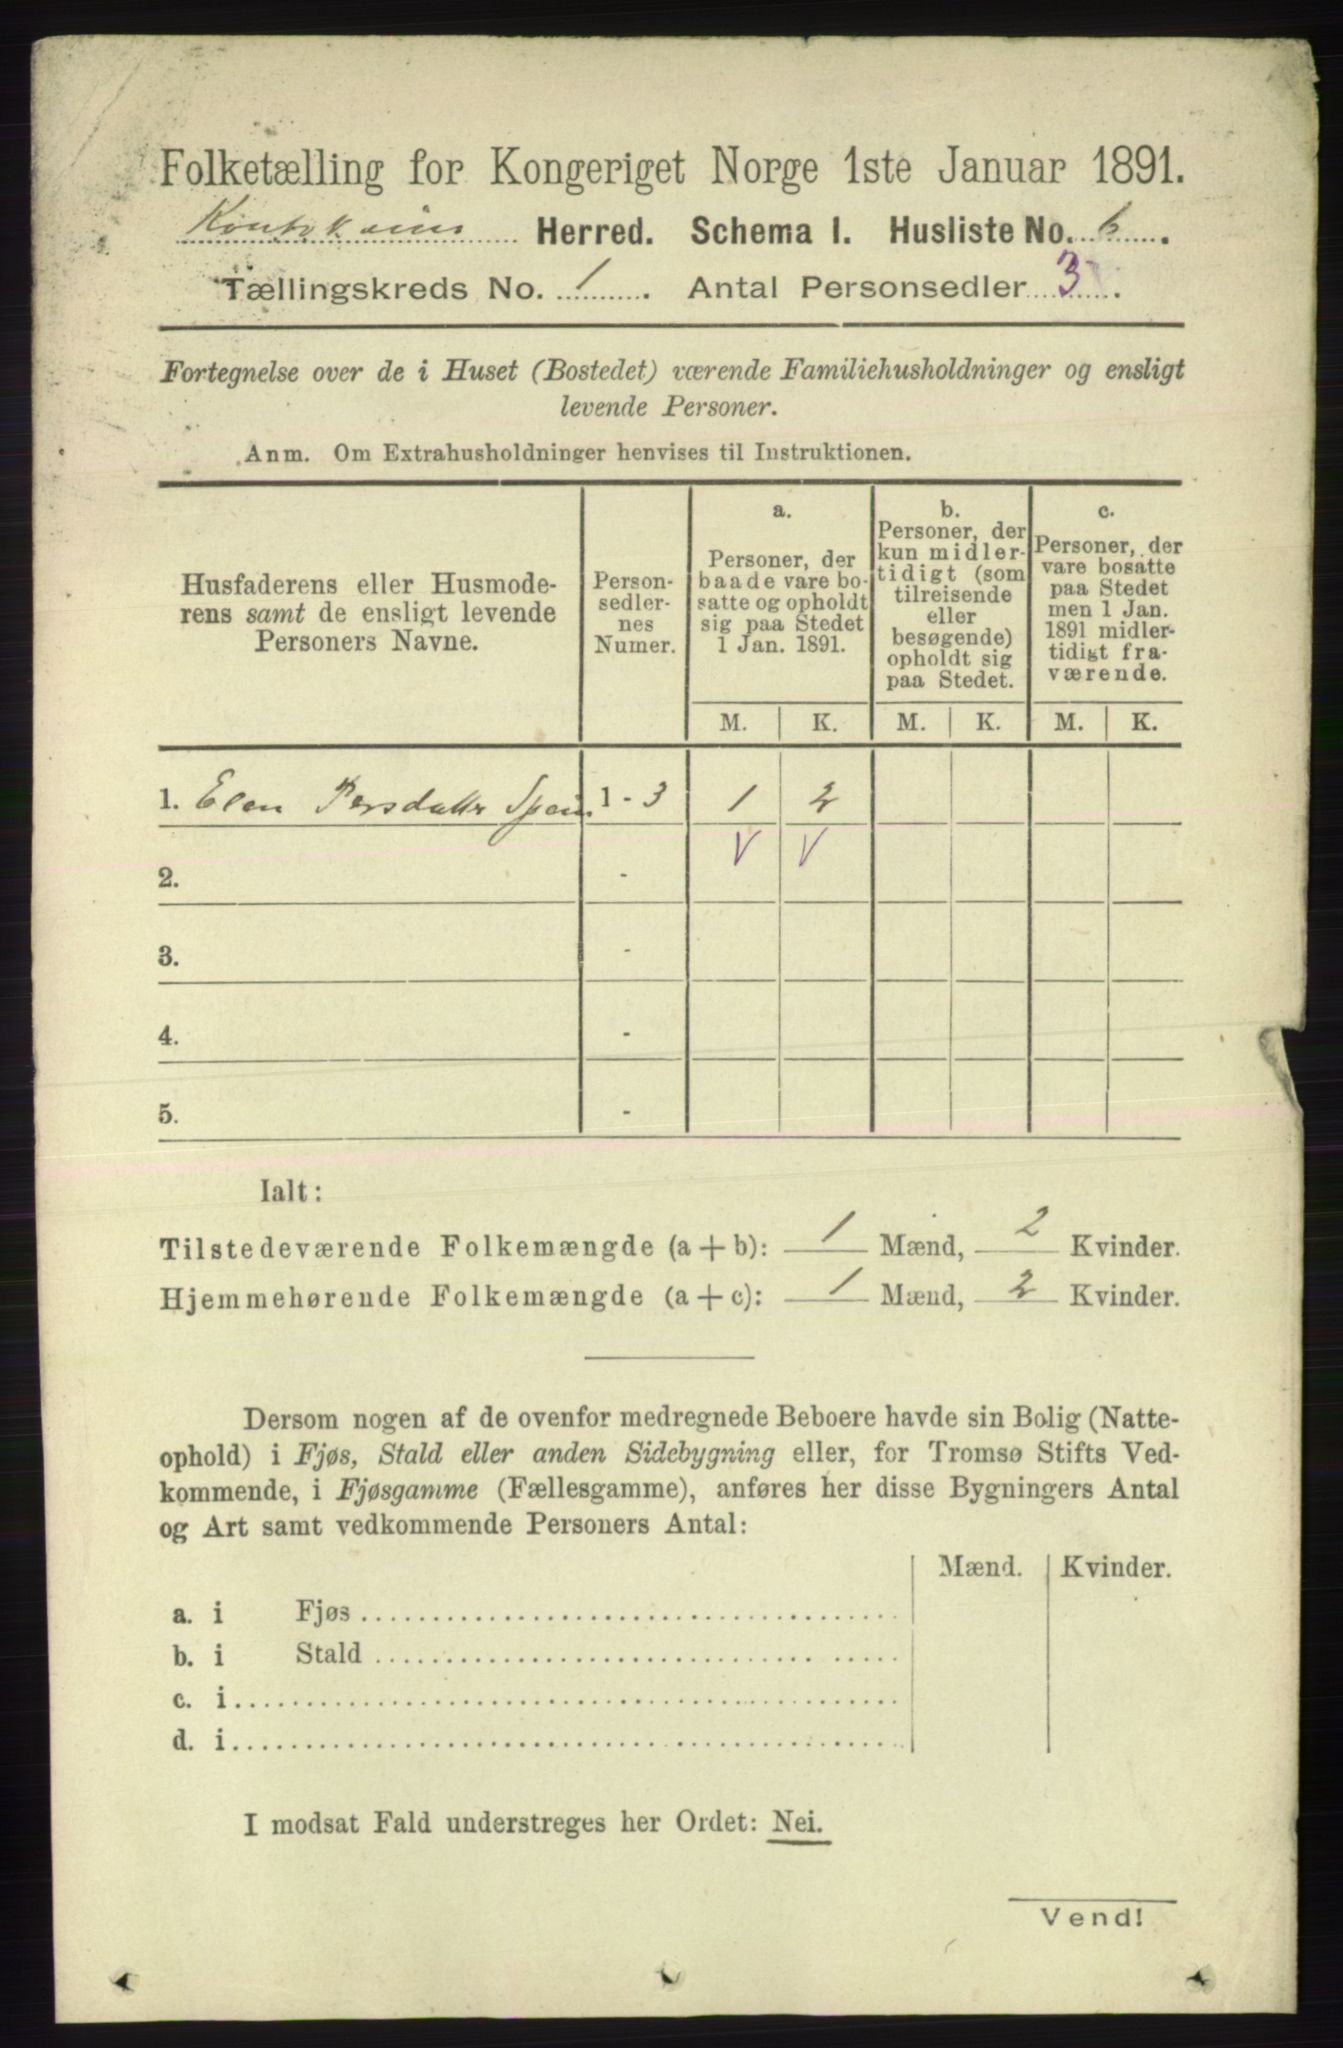 Folketælling for Kongeriget Norge 1ste Januar 1891.
Kautokeino Herred. Schema I. Husliste No. 6.
Tællingskreds No. 1. Antal Personsedler 3.
Fortegnelse over de i Huset (Bostedet) værende Familiehusholdninger og ensligt
levende Personer.
Anm. Om Extrahusholdninger henvises til Instruktionen.
Husfaderens eller Husmode-
rens samt de ensligt levende
Personers Navne.
Person-
sedler-
nes
Numer.
a.
Personer, der
baade vare bo-
satte og opholdt
sig paa Stedet
1 Jan. 1891.
b.
Personer, der
kun midler-
tidigt (som
tilreisende
eller
besøgende)
opholdt sig
paa Stedet.
c.
Personer, der
vare bosatte
paa Stedet
men 1 Jan.
1891 midler-
tidigt fra-
værende.
M. K. M. K. M. K.
1. Elen Persdatter 1 - 3 1 2
V V
2. -
3. -
4. -
5. -
Ialt:
Tilstedeværende Folkemængde (a + b): 1 Mænd, 2 Kvinder.
Hjemmehørende Folkemængde (a + c): 1 Mænd, 2 Kvinder.
Dersom nogen af de ovenfor medregnede Beboere havde sin Bolig (Natte-
ophold) i Fjøs, Stald eller anden Sidebygning eller, for Tromsø Stifts Ved-
kommende, i Fjøsgamme (Fællesgamme), anføres her disse Bygningers Antal
og Art samt vedkommende Personers Antal:
Mænd. Kvinder.
a. i Fjøs
b. i Stald
c. i
d. i
I modsat Fald understreges her Ordet: Nei.
Vend!